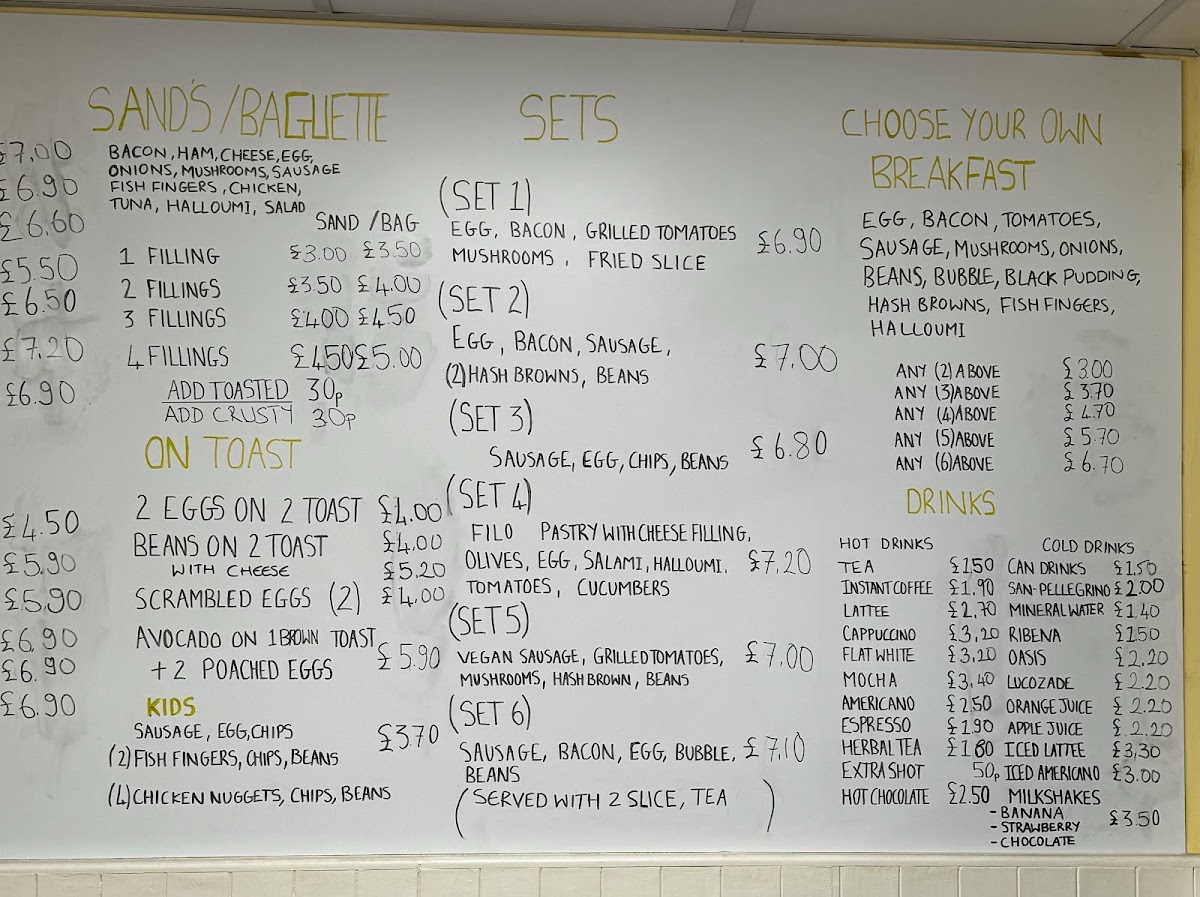 £7.00
£6.90
£6.60
£5.50
£6.50
£7.20
£6.90
£4.50
£5.90
£5.90
£6.90
£6.90
£6.90
SAND'S/BAGUETTE
BACON, HAM, CHEESE, EGG,
ONIONS, MUSHROOMS, SAUSAGE
FISH FINGERS, CHICKEN,
TUNA, HALLOUMI, SALAD
SAND/BAG
1 FILLING £3.00 £3.50
2 FILLINGS £3.50 £4.00
3 FILLINGS £4.00 £4.50
4 FILLINGS £4.50 £5.00
ADD TOASTED 30p
ADD CRUSTY 30p
ON TOAST
2 EGGS ON 2 TOAST £4.00
BEANS ON 2 TOAST £4.00
WITH CHEESE £5.20
SCRAMBLED EGGS (2) £4.00
AVOCADO ON 1 BROWN TOAST
+ 2 POACHED EGGS £5.90
KIDS
SAUSAGE, EGG, CHIPS £3.70
(2) FISH FINGERS, CHIPS, BEANS
(4) CHICKEN NUGGETS, CHIPS, BEANS
SETS
(SET 1)
EGG, BACON, GRILLED TOMATOES £6.90
MUSHROOMS, FRIED SLICE
(SET 2)
EGG, BACON, SAUSAGE, £7.00
(2) HASH BROWNS, BEANS
(SET 3)
SAUSAGE, EGG, CHIPS, BEANS £6.80
(SET 4)
FILO PASTRY WITH CHEESE FILLING,
OLIVES, EGG, SALAMI, HALLOUMI, £7.20
TOMATOES, CUCUMBERS
(SET 5)
VEGAN SAUSAGE, GRILLED TOMATOES, £7.00
MUSHROOMS, HASH BROWN, BEANS
(SET 6)
SAUSAGE, BACON, EGG, BUBBLE, £7.10
BEANS
(SERVED WITH 2 SLICE, TEA)
CHOOSE YOUR OWN
BREAKFAST
EGG, BACON, TOMATOES,
SAUSAGE, MUSHROOMS, ONIONS,
BEANS, BUBBLE, BLACK PUDDING,
HASH BROWNS, FISH FINGERS,
HALLOUMI
ANY (2) ABOVE £3.00
ANY (3) ABOVE £3.70
ANY (4) ABOVE £4.70
ANY (5) ABOVE £5.70
ANY (6) ABOVE £6.70
DRINKS
HOT DRINKS
TEA £1.50
INSTANT COFFEE £1.90
LATTEE £2.70
CAPPUCCINO £3,20
FLAT WHITE £3.20
MOCHA £3.40
AMERICANO £2.50
ESPRESSO £1.90
HERBAL TEA £1.80
EXTRA SHOT 50p
HOT CHOCOLATE £2.50
COLD DRINKS
CAN DRINKS £1.50
SAN-PELLEGRINO £2.00
MINERAL WATER £1.40
RIBENA £1.50
OASIS £2.20
LUCOZADE £2.20
ORANGE JUICE £2.20
APPLE JUICE £2.20
ICED LATTEE £3,30
ICED AMERICANO £3.00
MILKSHAKES
- BANANA £3.50
- STRAWBERRY
- CHOCOLATE